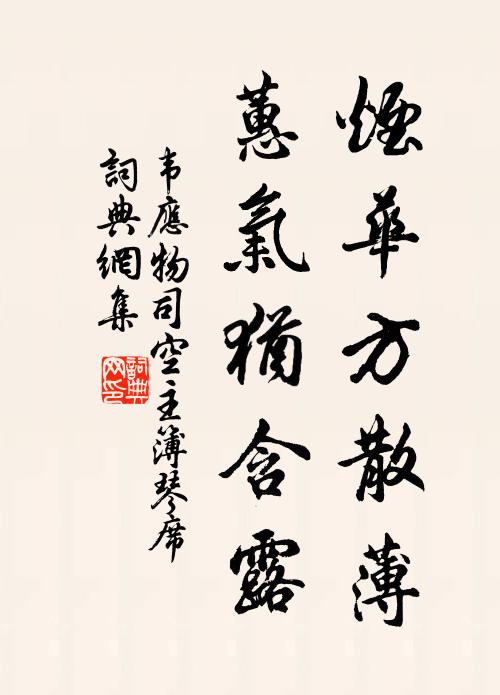 煙華方散薄
蕙氣猶含露
韦應物司空主簿琴席
詞典網集
詞典网印